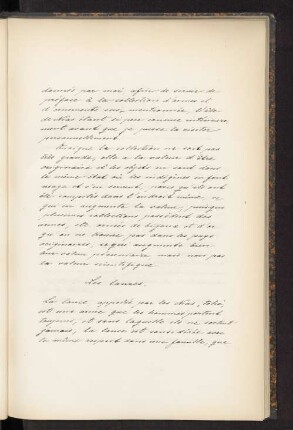 donnés par moi, afin de servir de
préface à la collection d'armes et
d'ornements sus-mentionnés. L'île
de Nias étant si peu connue intérieure-
ment avant que je pusse la visiter
personnellement.
Quoique la collection ne soit pas
très grande, elle a la valeur d'être
originaire et les objets en sont dans
le même état où les indigènes en font
usage et s'en servent, parce qu'ils ont
été emportés dans l'endroit même, ce
qui en augmente la valeur, puisque
plusieurs collections possèdent des
armes, etc. ornées de bijoux et d'or
qu'on ne trouve pas dans les
originaires, ce qui augmente bien
leur valeur pécuniaire mais non pas
la valeur scientifique.
Les lances.
La lance, appelée par les Nias, Toho,
est une arme que les hommes portent
toujours, et sans laquelle ils ne sortent
jamais, la lance est considérée avec
le même respect dans une famille, que